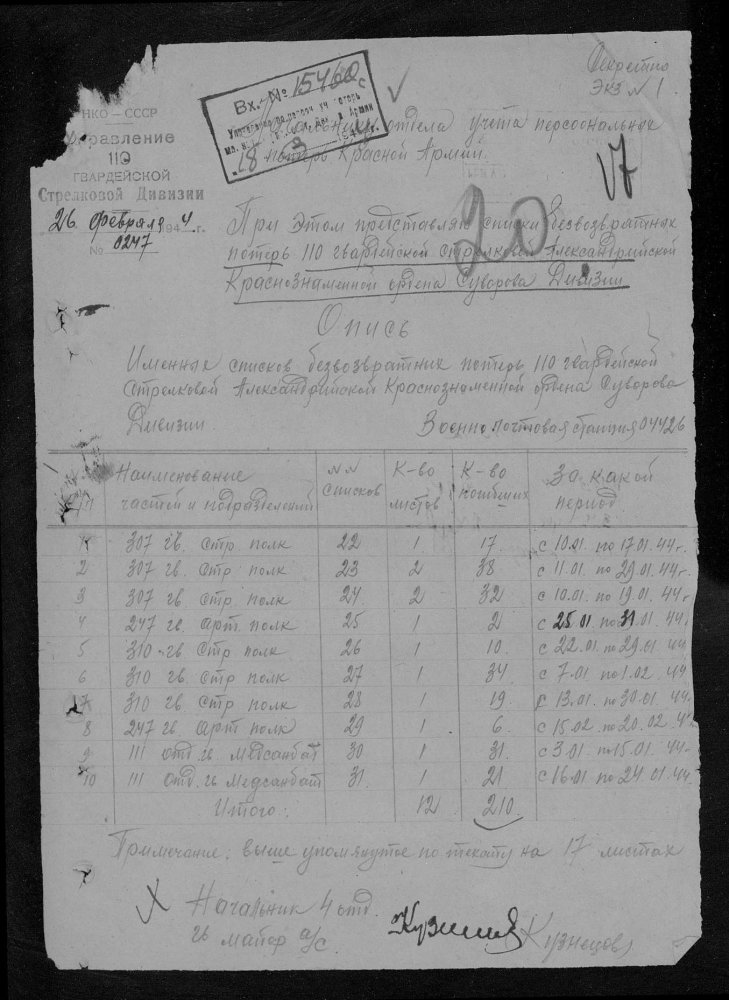 Секретно
Экз № 1.
НКО — СССР
Управление
110
ГВАРДЕЙСКОЙ
Стрелковой Дивизии
26 февраля 1944 г.
№ 0247
Вх. № 15460 с
18 3
отдела учета персональных
потерь Красной Армии.
17
20
При этом представляю списки безвозвратных
потерь 110 гвардейской Стрелковой Александрийской
Краснознаменной ордена Суворова Дивизии
Опись
Именных списков безвозвратных потерь 110 гвардейской
Стрелковой Александрийской Краснознаменной ордена Суворова
Дивизии. Военно почтовая станция 04426
Наименование частей и подразделений №№ списков К-во листов К-во погибших За какой период
1 307 гв. стр полк 22 1 17. с 10.01. по 17.01.44 г.
2 307 гв. стр полк 23 2 38 с 11.01. по 29.01.44 г.
3 307 гв. стр полк 24 2 32 с 10.01. по 19.01.44 г
4 247 гв. арт. полк 25 1 2 с 25.01. по 31.01.44
5 310 гв. стр полк 26 1 10. с 22.01. по 29.01.44
6 310 гв. стр полк 27 1 34 с 7.01 по 1.02.44
7 310 гв. стр полк 28 1 19 с 13.01. по 30.01.44
8 247 гв. арт полк 29 1 6. с 15.02 по 20.02.44
9 111 отд. гв. медсанбат 30 1 31. с 3.01. по 15.01.44
10 111 отд. гв медсанбат 31. 1 21 с 16.01 по 24.01.44
Итого: 12 210.
Примечание: выше упомянутое по тексту на 17 листах
Начальник 4 отд.
гв майор а/с Кузнецов